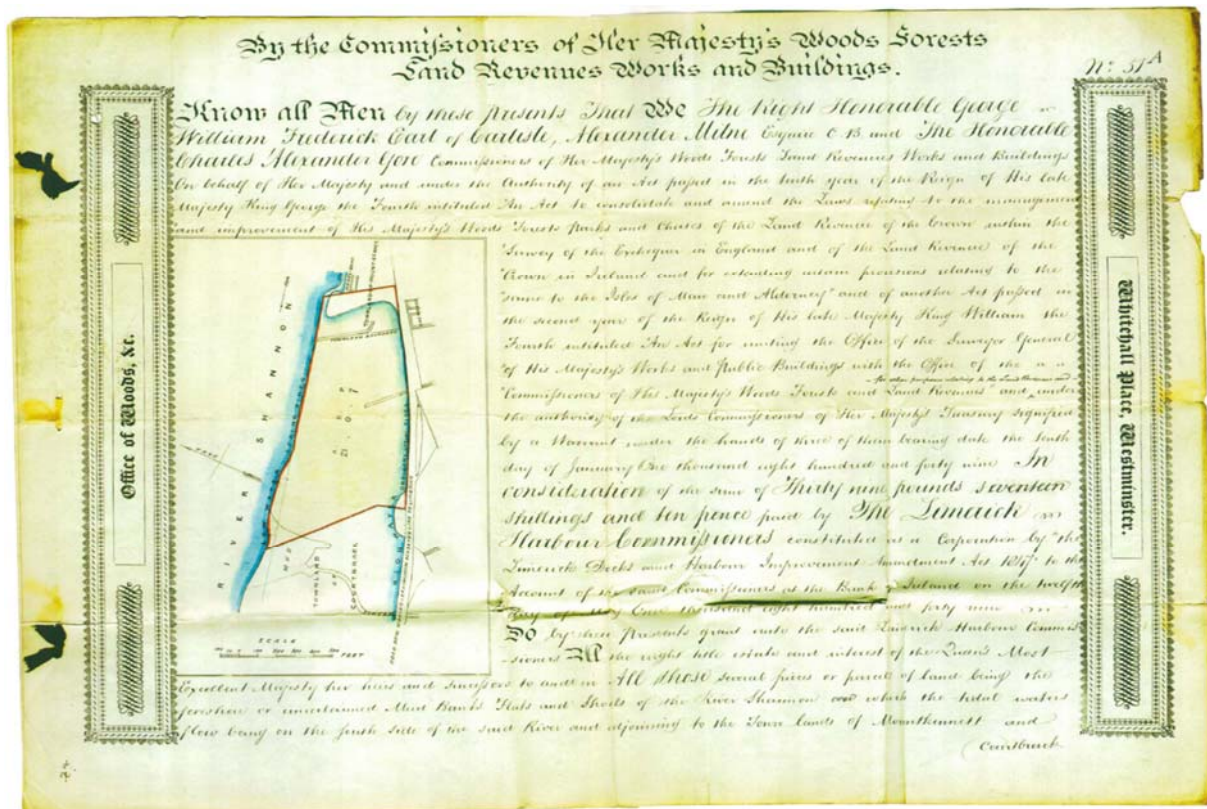 By the Commissioners of Her Majesty's Woods Forests
Land Revenues Works and Buildings.
No. 51 A
Office of Woods, &c.
Whitehall Place, Westminster.
Know all Men by these Presents That We The Right Honorable George
William Frederick Earl of Carlisle, Alexander Milne Esquire C B and The Honorable
Charles Alexander Gore Commissioners of Her Majesty's Woods Forests Land Revenues Works and Buildings
On behalf of Her Majesty and under the Authority of an Act passed in the tenth year of the Reign of His late
Majesty King George the Fourth intituled "An Act to consolidate and amend the Laws relating to the management
and improvement of His Majesty's Woods Forests Parks and Chases of the Land Revenue of the Crown within the
"Survey of the Exchequer in England and of the Land Revenue of the
"Crown in Ireland and for extending certain provisions relating to the
"same to the Isles of Man and Alderney" and of another Act passed in
the second year of the Reign of His late Majesty King William the
Fourth intituled "An Act for uniting the Office of the Surveyor General
"of His Majesty's Works and Public Buildings with the Office of the
for other purposes relating to the Land Revenues and
"Commissioners of His Majesty's Woods Forests and Land Revenues" and under
the authority of the Lords Commissioners of Her Majesty's Treasury signified
by a Warrant under the hands of three of them bearing date the tenth
day of January One thousand eight hundred and forty nine In
consideration of the sum of Thirty nine pounds seventeen
shillings and ten pence paid by The Limerick
Harbour Commissioners constituted as a Corporation by "the
Limerick Docks and Harbour Improvement Amendment Act 1847" to the
Account of the said Commissioners at the Bank Ireland on the twelfth
day of May One thousand eight hundred and forty nine
Do by these Presents grant unto the said Limerick Harbour Commis-
-sioners All the right title estate and interest of the Queen's Most
Excellent Majesty her heirs and successors to and in All those several pieces or parcel of land being the
foreshore or unreclaimed Mud Banks Flats and Shoals of the River Shannon over which the tidal waters
flow being on the South side of the said River and adjoining to the Town lands of Mountkennett and
Courtbrack
RIVER SHANNON
21. 0. 7
TOWNLAND
OF
SCALE
FEET